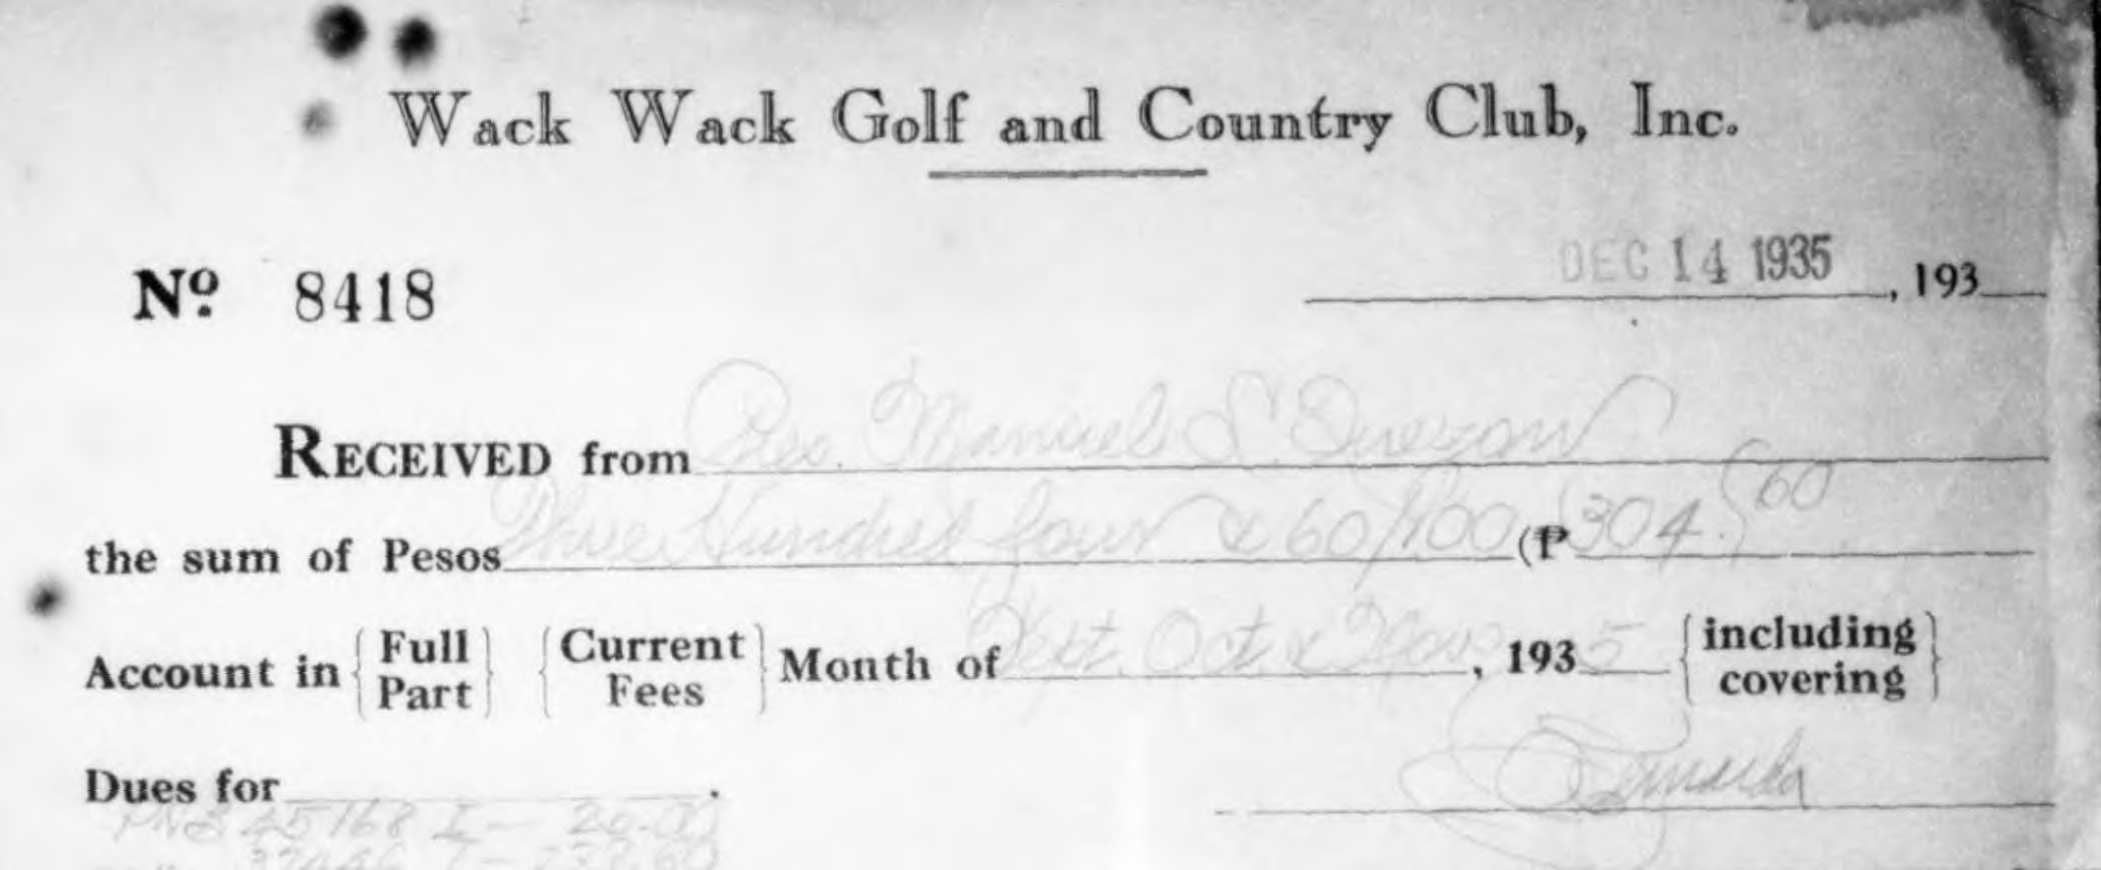 Wack Wack Golf and Country Club, Inc.
Nº 8418 DEC 14 1935, 193
RECEIVED from Pres. Manuel L. Quezon
the sum of Pesos Three Hundred four & 60/100 (₱304.60
Account in { Full Part } { Current Fees } Month of Sept. Oct. & Nov., 1935 { including covering }
Dues for .
PNB 45768 I — 20.00